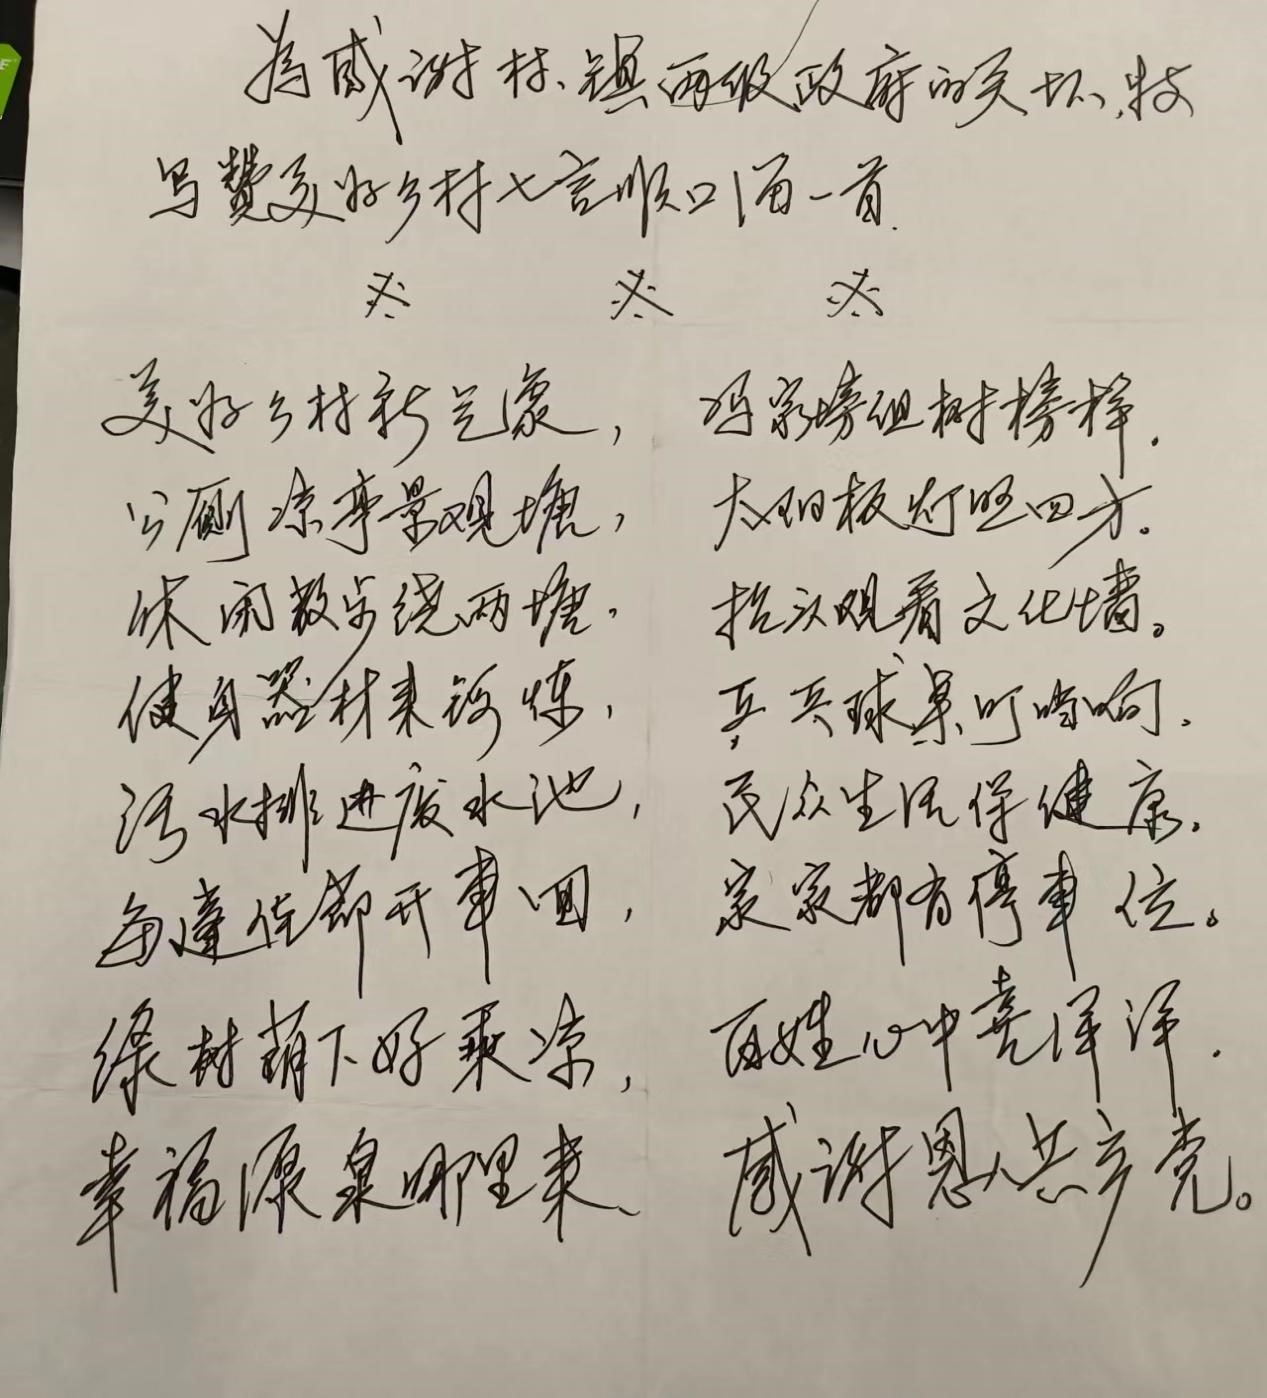 为感谢村、镇两级政府的关怀,特
写赞美好乡村七言顺口溜一首.
美好乡村新气象, 冯家塝组树榜样.
公厕凉亭景观塘, 太阳板灯照四方。
休闲散步绕两塘. 抬头观看文化墙。
健身器材来锻炼, 乒乓球桌叮当响.
污水排进废水池, 民众生活保健康.
每逢佳节开车回, 家家都有停车位。
绿树荫下好乘凉, 百姓心中喜洋洋.
幸福源泉哪里来、 感谢恩人共产党。